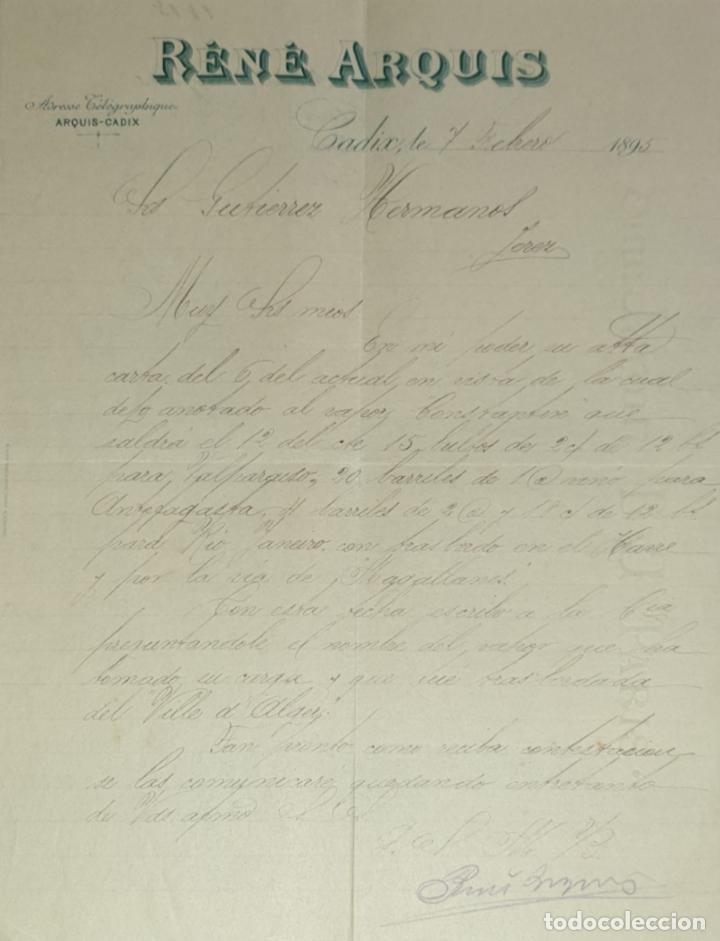 RÉNÉ ARQUIS
Adresse Télégraphique
ARQUIS-CADIX
Cadix, le 7 Febrero 1895
Srs Gutierrez Hermanos
Jerez
Muy Srs mios
En mi poder su atta
carta del 6 del actual, en vista de la cual
dejo anotado al vapor Constantin que
saldrá el 12 del cte 15 bultos de 2 c/ de 12 bt
para Valparaiso, 20 barriles de 1@ vino para
Antofagasta, 4 barriles de 2@ y 18 c/ de 12 bt
para Rio Janeiro con trasbordo en el Havre
y por la via de Magallanes.
Con esta fecha escribo a la Cia
preguntandole el nombre del vapor que ha
tomado su carga y que fué trasbordada
del "Ville d'Alger"
Tan pronto como reciba contestacion
se las comunicare quedando entretanto
de Vds afmo S. S.
Q. S. M. B.
René Arquis
todocoleccion